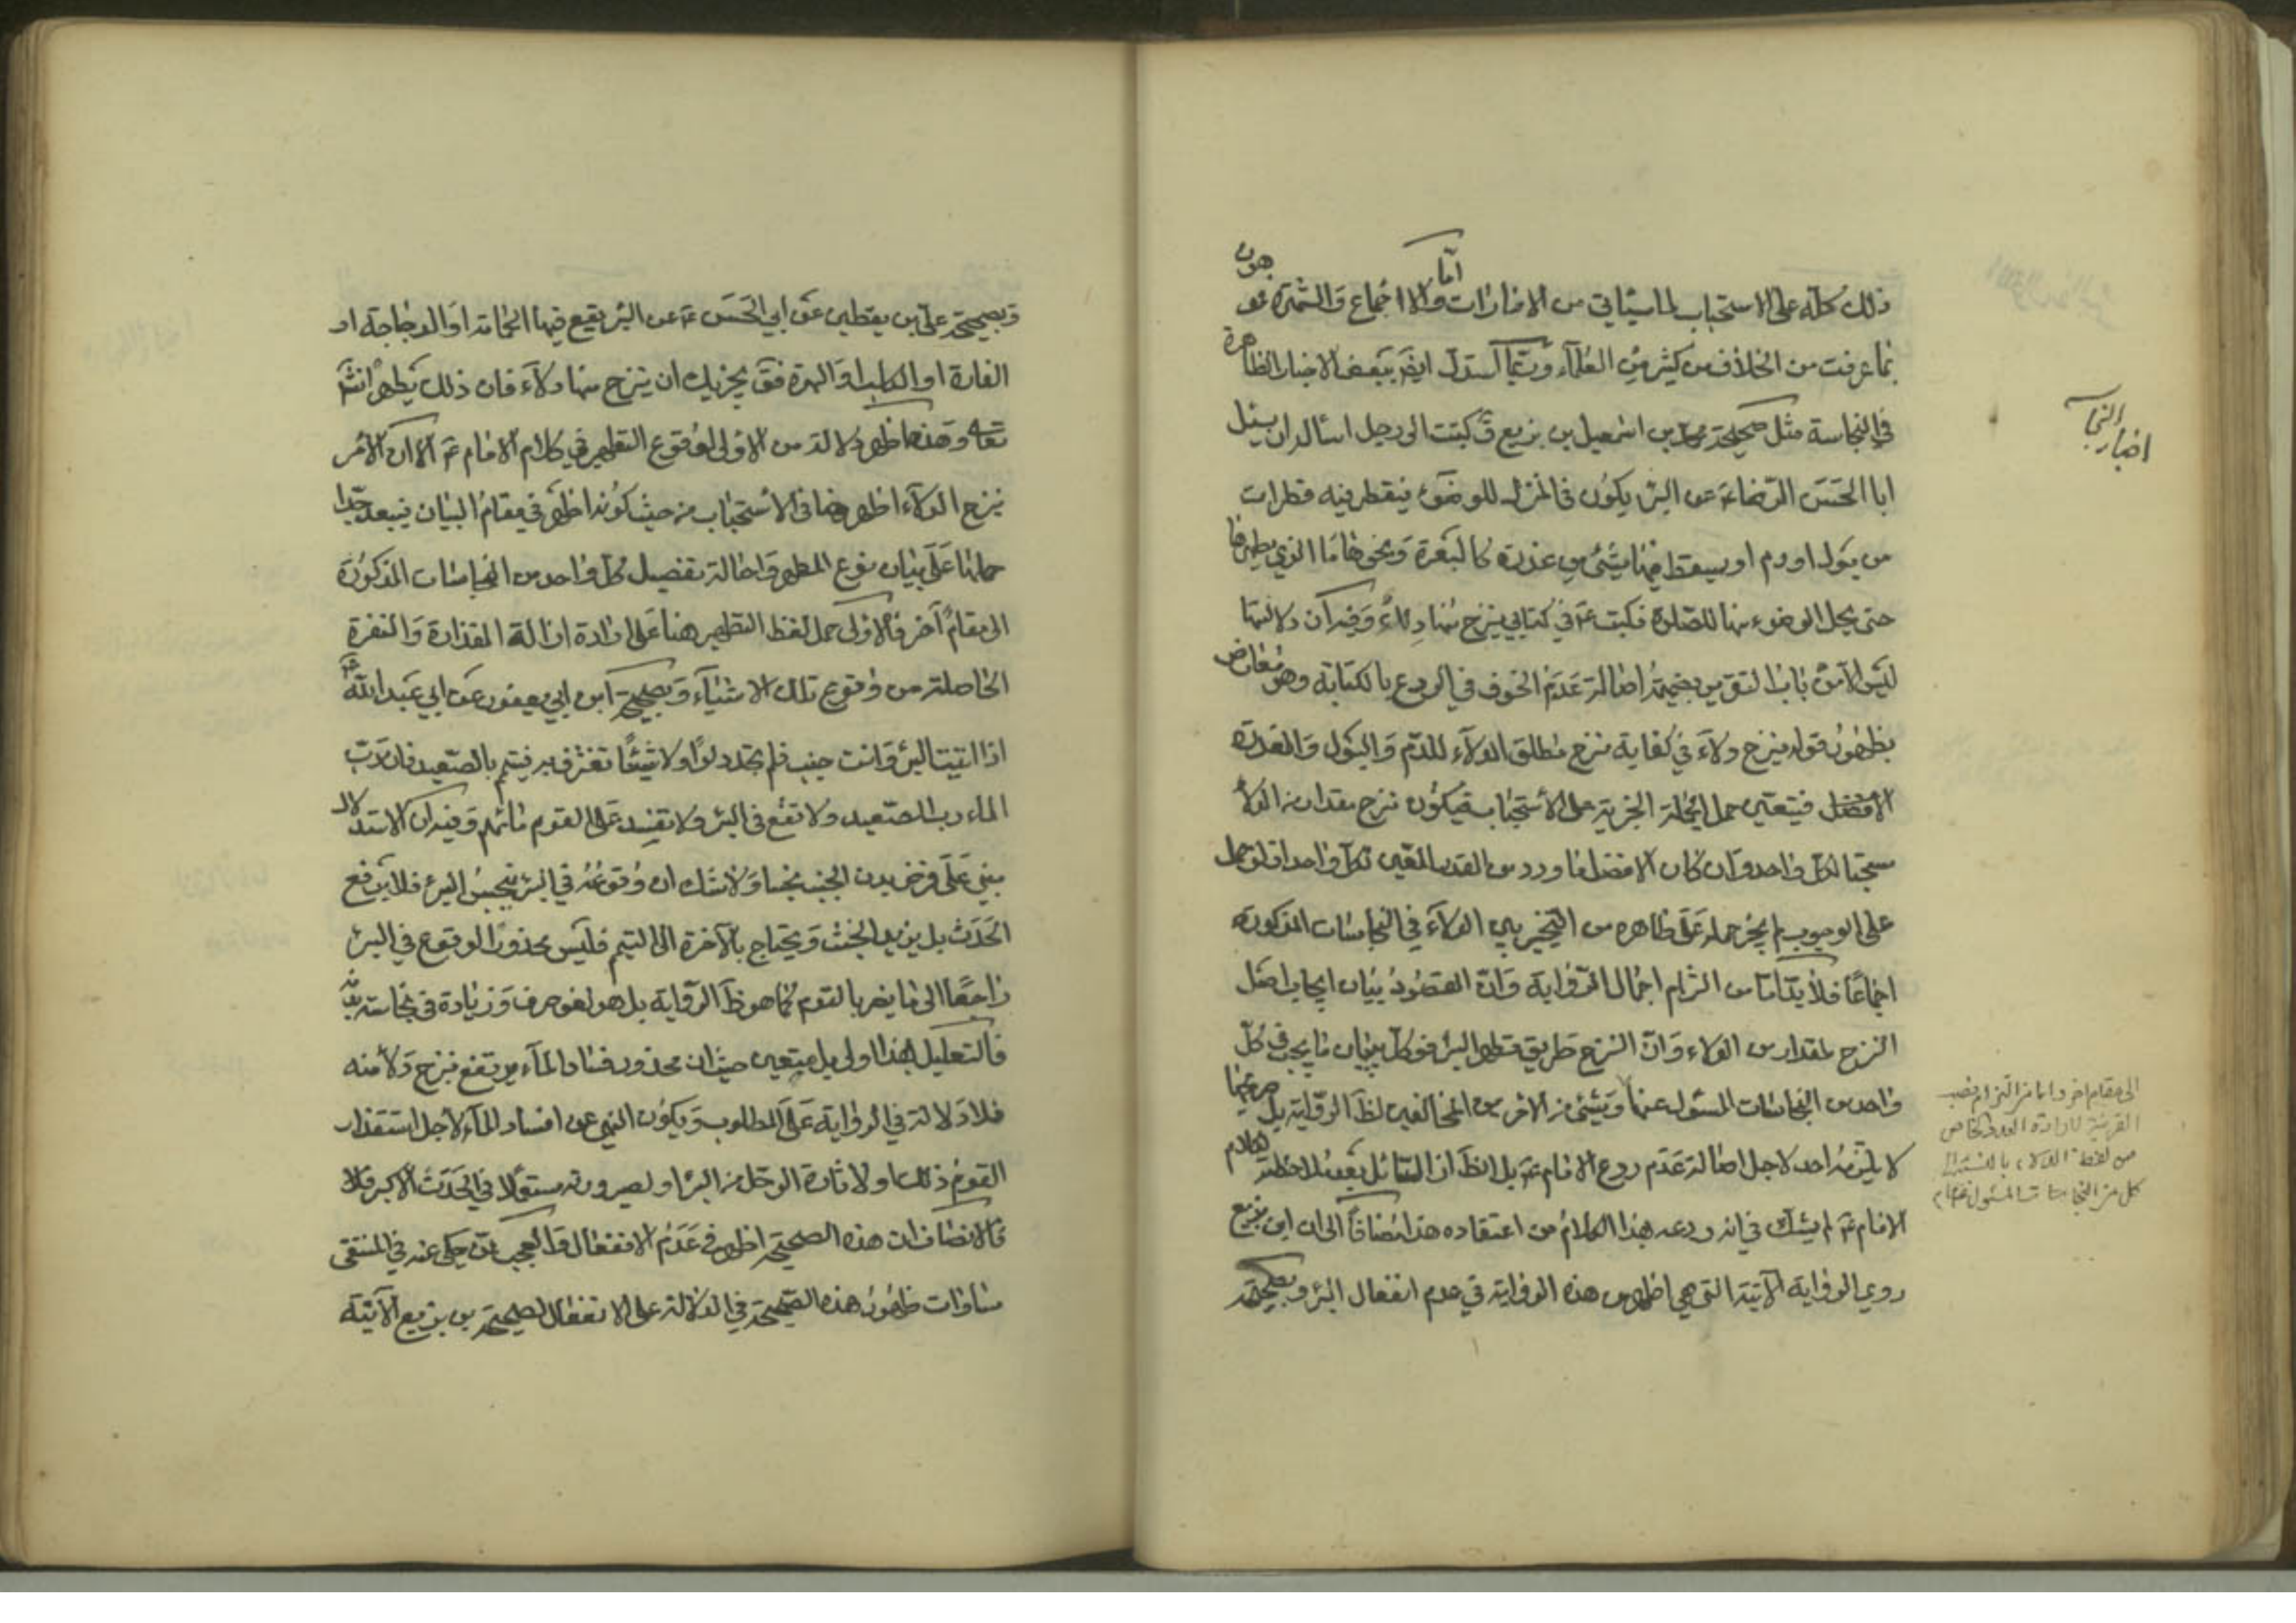 ذلك كله على الاستحباب لما سيأتي من الامارات واما الاجماع والشهرة فموهون
بما عرفت من الخلاف من كثير من العلماء وربما استدل ايض ببعض الاخبار الظاهرة
في النجاسة مثل صحيحة محمد بن اسمعيل بن بزيع ق كتبت الى رجل اسأله ان يسئل
ابا الحسن الرضا ع عن البئر يكون في المنزل للوضوء فيقطر فيه قطرات
من بول او دم او يسقط فيها شئ من عذرة كالبعرة ونحوها ما الذي يطهرها
حتى يحل الوضوء منها للصلوة فكتب ع في كتابي ينزح منها دلاء وفيه ان دلالتها
ليس الا من باب التقرير بضميمة اصالة عدم الخوف في الردع بالكتابة وهو معارض
بظهور قوله ينزح دلاء في كفاية نزح مطلق الدلاء للدم والبول والعذرة
فيتعين حمل الجملة الخبرية على الاستحباب فيكون نزح مقدار من الدلاء
مستحبا لكل واحد وان كان الافضل ما ورد من القدر المعين لكل واحد اذ لو حمل
على الوجوب لم يجز حمله على ظاهره من التخيير بين الدلاء في النجاسات المذكورة
اجماعا فلا بد اما من التزام اجمال الرواية وان المقصود بيان ايجاب اصل
النزح لمقدار من الدلاء وان النزح طريق تطهر البئر فوكل بيان ما يجب في كل
واحد من النجاسات المسئول عنها وشئ من الامرين المخالفين لظ الرواية بل صريحها
لا يلتزمه احد لاجل اصالة عدم ردع الامام ع بل الظ ان السائل بعد ملاحظة كلام
الامام ع لم يشك في انه ردعه بهذا الكلام من اعتقاده هذا مضافا الى ان ابن بزيع
روى الرواية الآتية التي هي اظهر من هذه الرواية في عدم انفعال البئر وبصحيحة
اخبار النجاسة
الى مقام اخر واما من التزام نصب
القرينة لارادة العدد الخاص
من لفظ الدلاء بالنسبة الى
كل من النجاسات المسئول عنها
وبصحيحة علي بن يقطين عن ابي الحسن ع عن البئر يقع فيها الحمامة او الدجاجة او
الفارة او الكلب او الهرة فق يجزيك ان ينزح منها دلاء فان ذلك يطهرها انش
تعالى وهذه اظهر دلالة من الاولى لوقوع التطهير في كلام الامام ع الا ان الامر
بنزح الدلاء اظهر هنا في الاستحباب من حيث كونه اظهر في مقام البيان فيبعد جدا
حملنا على بيان نوع المطهر واحالة تفصيل كل واحد من النجاسات المذكورة
الى مقام آخر فالاولى حمل لفظ التطهير هنا على ارادة ازالة القذارة والنفرة
الحاصلة من وقوع تلك الاشياء وبصحيحة ابن ابي يعفور عن ابي عبد الله ع
اذا اتيت البئر وانت جنب فلم تجد دلوا ولا شيئا تغترف به فتيمم بالصعيد فان رب
الماء رب الصعيد ولا تقع في البئر ولا تفسد على القوم مائهم وفيه ان الاستدلال
مبني على فرض بدن الجنب نجسا ولا شك ان وقوعه في البئر ينجس البئر فلا يرفع
الحدث بل يزيد الخبث ويحتاج بالآخرة الى التيمم فليس محذور الوقوع في البئر
راجعا الى ما يضر بالقوم كما هو ظ الرواية بل هو لغو صرف وزيادة في نجاسة بدنه
فالتعليل بهذا اولى بل متعين حيث ان محذور فساد الماء يرتفع بنزح دلاء منه
فلا دلالة في الرواية على المطلوب ويكون النهي عن افساد الماء لاجل استقذار
القوم ذلك او لاثارة الوحل من البئر او لصيرورته مستعملا في الحدث الاكبر
فالانصاف ان هذه الصحيحة اظهر في عدم الانفعال والعجب ممن حكى عنه في المنتقى
مساوات ظهور هذه الصحيحة في الدلالة على الانفعال لصحيحة بن بزيع الآتية